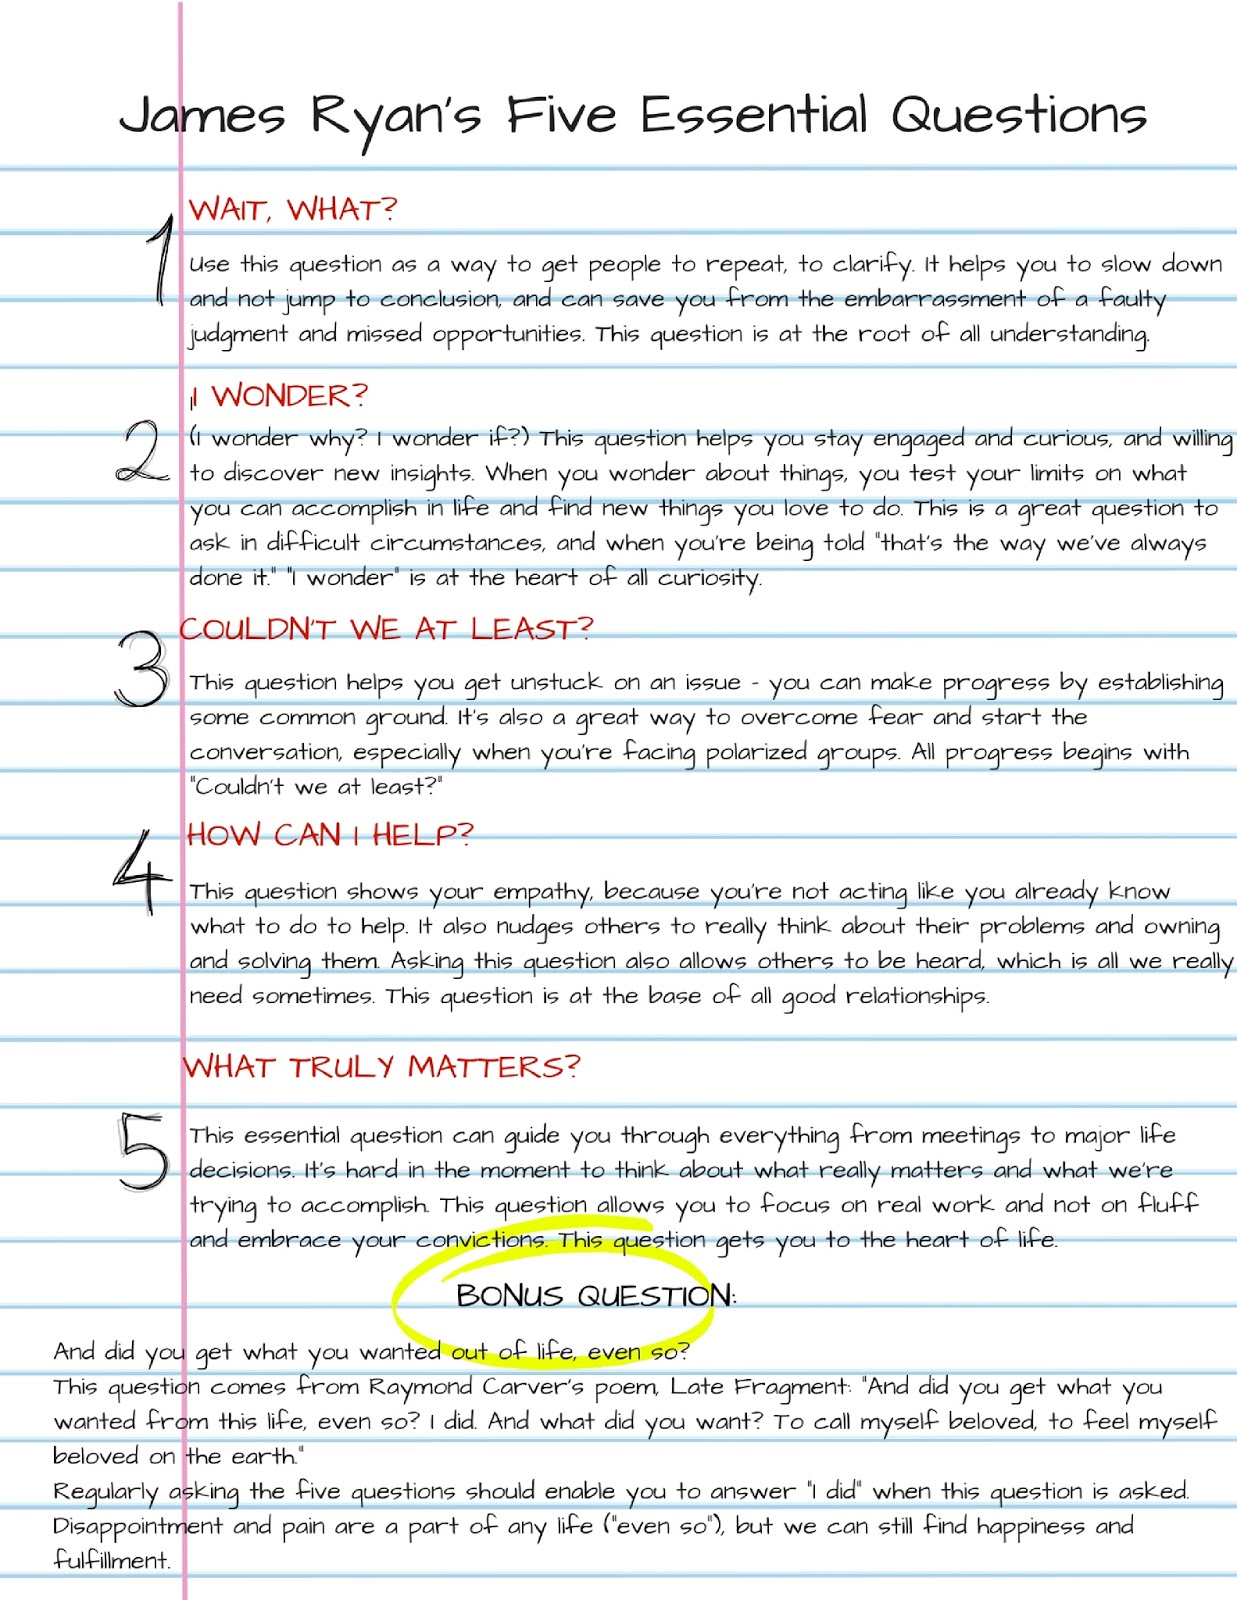 James Ryan's Five Essential Questions
WAIT, WHAT?
1
Use this question as a way to get people to repeat, to clarify. It helps you to slow down
and not jump to conclusion, and can save you from the embarrassment of a faulty
judgment and missed opportunities. This question is at the root of all understanding.
I WONDER?
2
(I wonder why? I wonder if?) This question helps you stay engaged and curious, and willing
to discover new insights. When you wonder about things, you test your limits on what
you can accomplish in life and find new things you love to do. This is a great question to
ask in difficult circumstances, and when you're being told "that's the way we've always
done it." "I wonder" is at the heart of all curiosity.
COULDN'T WE AT LEAST?
3
This question helps you get unstuck on an issue - you can make progress by establishing
some common ground. It's also a great way to overcome fear and start the
conversation, especially when you're facing polarized groups. All progress begins with
"Couldn't we at least?"
HOW CAN I HELP?
4
This question shows your empathy, because you're not acting like you already know
what to do to help. It also nudges others to really think about their problems and owning
and solving them. Asking this question also allows others to be heard, which is all we really
need sometimes. This question is at the base of all good relationships.
WHAT TRULY MATTERS?
5
This essential question can guide you through everything from meetings to major life
decisions. It's hard in the moment to think about what really matters and what we're
trying to accomplish. This question allows you to focus on real work and not on fluff
and embrace your convictions. This question gets you to the heart of life.
BONUS QUESTION:
And did you get what you wanted out of life, even so?
This question comes from Raymond Carver's poem, Late Fragment: "And did you get what you
wanted from this life, even so? I did. And what did you want? To call myself beloved, to feel myself
beloved on the earth."
Regularly asking the five questions should enable you to answer "I did" when this question is asked.
Disappointment and pain are a part of any life ("even so"), but we can still find happiness and
fulfillment.